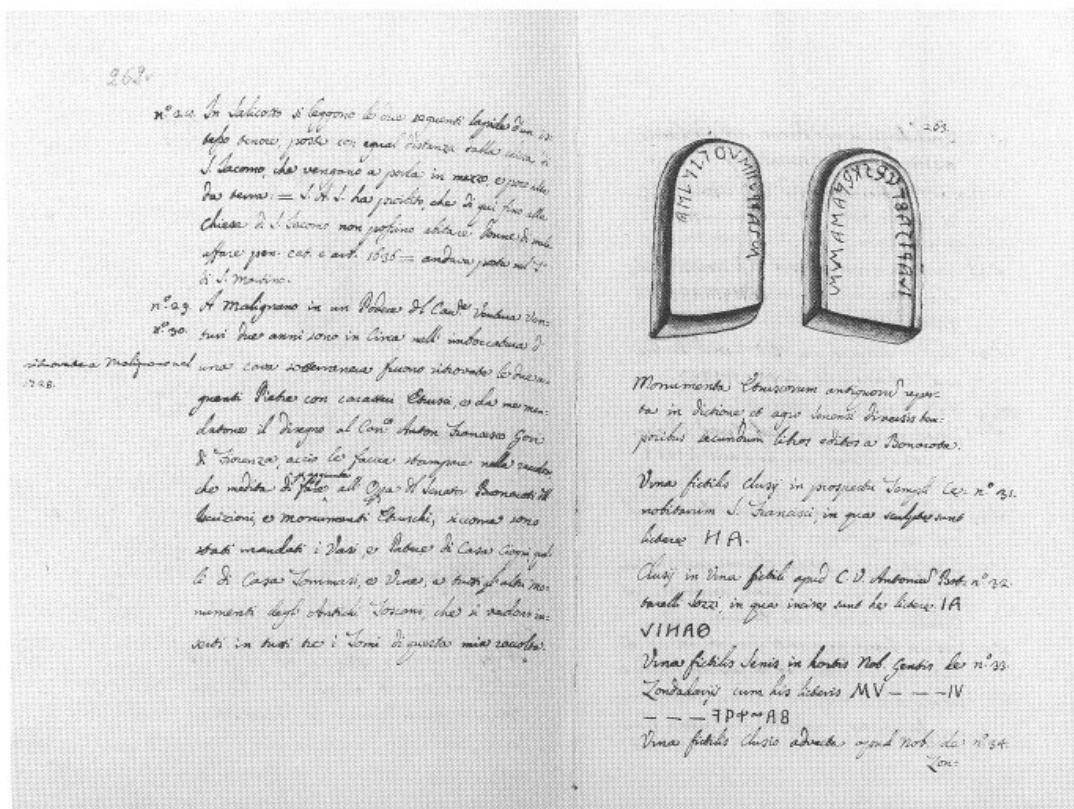 262.
nº 28. In Salicotto si leggono le due seguenti lapide d'un is-
tesso tenore, poste con egual distanza dalla chiesa di
S. Iacomo, che vengono a porla in mezzo, e poco alte
da terra: = S. A. S. ha proibito, che di qui fino alla
Chiesa di S. Iacomo non possino abitare Donne di male
affare pen. cat. e art. 1636 = andava posta nel
di S. Martino.
nº 29. A Malignano in un Podere del Cav.re Ventura Ven-
nº 30. turi due anni sono in Circa nell' imboccatura d
ritrovate a Malignano nel
1728.
una cava sotterranea furono ritrovate le due se-
guenti Pietre con caratteri Etrusci, e da me man-
datone il disegno al Can.co Anton Francesco Gori
di Fiorenza, acciò le faccia stampare nella raccolta,
che medita di fare all' Opa del Senator Buonaroti
Iscrizioni, e monumenti Etruschi, siccome sono
stati mandati i Vasi, e Patere di Casa Ciogni
li di Casa Tommasi, e Urne, e tutti gl'altri mo-
numenti degli Antichi Toscani, che si vedono in-
seriti in tutti tre i Tomi di questa mia raccolta.
263.
Monumenta Etruscorum antiquorū reper-
ta in dictione, et agro Senensi diversis tem-
poribus secundum libros editos a Bonarota.
Urna fictilis Clusij in prospectu Templi Ce- nº 31.
nobitarum S. Francisci, in qua sculptæ sunt
literæ ꓧA.
Clusij in Urna fictili apud C. V. Antoniū Bot- nº 32
tarelli Sozzi, in qua incisæ sunt hæ literæ. IA
VIHAΘ
Urna fictilis Senis in hortis Nob. Gentis de nº 33.
Zondadarijs cum his literis MV – – – IV
Urna fictilis Clusio advecta apud Nob. de nº 34.
Zon-